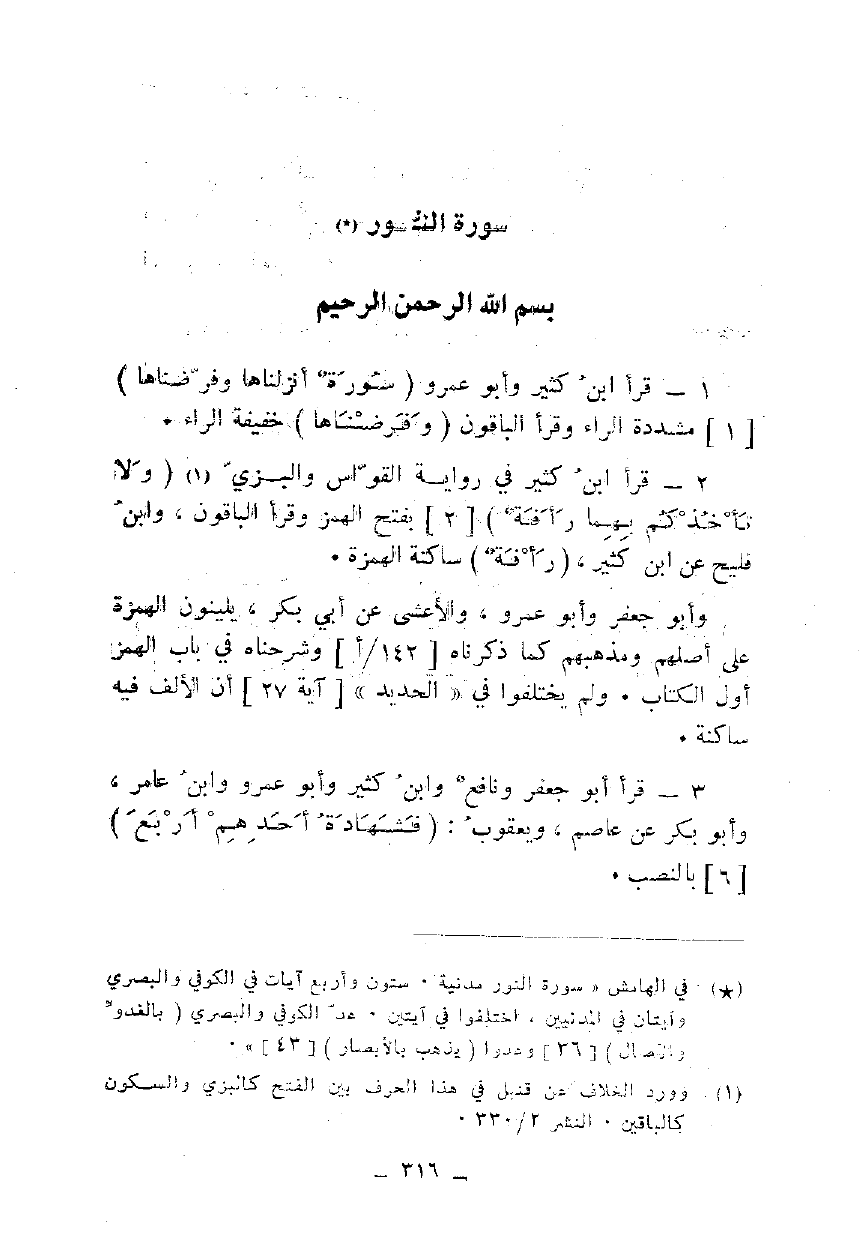 سورة النُّور (*)
بسم الله الرحمن الرحيم
١ ــ قرأ ابنُ كثير وأبو عمرو ( سُورَةٌ أنزلناها وفرّضناها )
[ ١ ] مشددة الراء وقرأ الباقون ( وَفَرَضْنَاها ) خفيفة الراء •
٢ ــ قرأ ابنُ كثير في روايـة القوّاس والبـزيّ (١) ( وَلا
تَأْخُذْكُم بِهِما رَأَفَةٌ ) [ ٢ ] بفتح الهمز وقرأ الباقون ، وابنُ
فليح عن ابن كثير ، ( رَأْفَةٌ ) ساكنة الهمزة •
وأبو جعفر وأبو عمرو ، والأعشى عن أبي بكر ، يلينون الهمزة
على أصلهم ومذهبهم كما ذكرناه [ ١٤٢/أ ] وشرحناه في باب الهمز
أول الكتاب • ولم يختلفوا في « الحديد » [ آية ٢٧ ] أن الألف فيه
ساكنة •
٣ ــ قرأ أبو جعفر ونافعٌ وابنُ كثير وأبو عمرو وابنُ عامر ،
وأبو بكر عن عاصم ، ويعقوبُ : ( فَشَهَادَةُ أَحَدِهِمْ أَرْبَعَ )
[ ٦ ] بالنصب •
(★) في الهامش « سورة النور مدنية • ستون وأربع آيات في الكوفي والبصري
وآيتان في المدنيين ، اختلفوا في آيتين • عدّ الكوفي والبصري ( بالغدو
والآصال ) [ ٣٦ ] وعدوا ( يذهب بالأبصار ) [ ٤٣ ] » •
(١) وورد الخلاف عن قنبل في هذا الحرف بين الفتح كالبزي والسكون
كالباقين • النشر ٣٣٠/٢ •
ــ ٣١٦ ــ